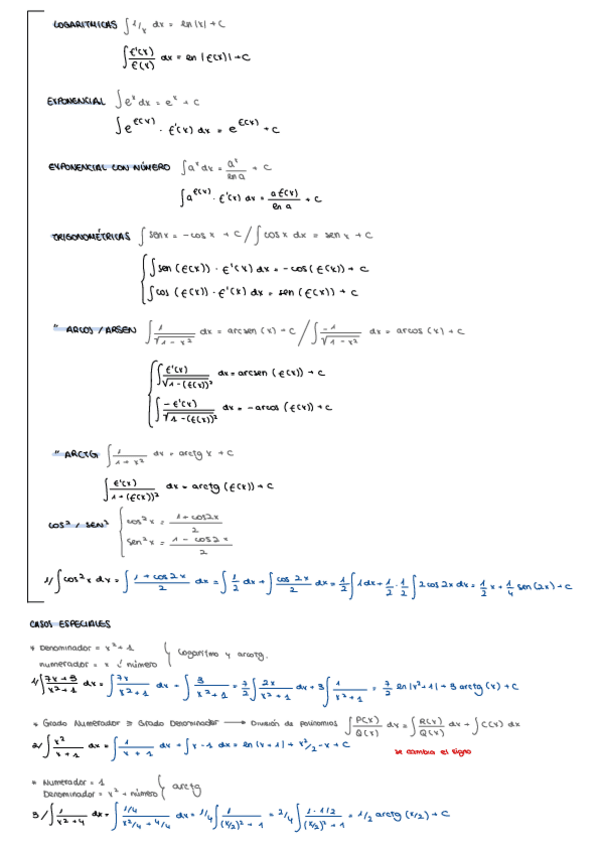 LOGARITMICAS ∫ 1/x dx = ln |x| + C
∫ f'(x)/f(x) dx = ln |f(x)| + C
EXPONENCIAL ∫ e^x dx = e^x + C
∫ e^f(x) · f'(x) dx = e^f(x) + C
EXPONENCIAL CON NÚMERO ∫ a^x dx = a^x/ln a + C
∫ a^f(x) · f'(x) dx = a f(x)/ln a + C
TRIGONOMÉTRICAS ∫ sen x = -cos x + C / ∫ cos x dx = sen x + C
∫ sen (f(x)) · f'(x) dx = -cos (f(x)) + C
∫ cos (f(x)) · f'(x) dx = sen (f(x)) + C
" ARCOS / ARSEN ∫ 1/√(1-x²) dx = arcsen (x) + C / ∫ -1/√(1-x²) dx = arcos (x) + C
∫ f'(x)/√(1-(f(x))²) dx = arcsen (f(x)) + C
∫ -f'(x)/√(1-(f(x))²) dx = -arcos (f(x)) + C
" ARCTG ∫ 1/(1+x²) dx = arctg x + C
∫ f'(x)/(1+(f(x))²) dx = arctg (f(x)) + C
COS² / SEN² cos² x = (1+cos2x)/2
sen² x = (1-cos2x)/2
1/ ∫ cos² x dx = ∫ (1+cos 2x)/2 dx = ∫ 1/2 dx + ∫ (cos 2x)/2 dx = 1/2 ∫ 1dx + 1/2 · 1/2 ∫ 2cos 2x dx = 1/2 x + 1/4 sen (2x) + C
CASOS ESPECIALES
* Denominador = x² + 1
numerador = x y número } Logaritmo y arcotg.
1/ ∫ (7x+3)/(x²+1) dx = ∫ 7x/(x²+1) dx + ∫ 3/(x²+1) = 7/2 ∫ 2x/(x²+1) dx + 3 ∫ 1/(x²+1) = 7/2 ln |x²+1| + 3 arctg (x) + C
* Grado Numerador ≥ Grado Denominador → División de polinomios ∫ P(x)/Q(x) dx = ∫ R(x)/Q(x) dx + ∫ C(x) dx
2/ ∫ x²/(x+1) dx = ∫ 1/(x+1) dx + ∫ x-1 dx = ln |x+1| + x²/2 - x + C
se cambia el signo
* Numerador = 1
Denominador = x² + número } arctg
3/ ∫ 1/(x²+4) dx = ∫ (1/4)/(x²/4 + 4/4) dx = 1/4 ∫ 1/((x/2)²+1) = 2/4 ∫ (1·1/2)/((x/2)²+1) = 1/2 arctg (x/2) + C